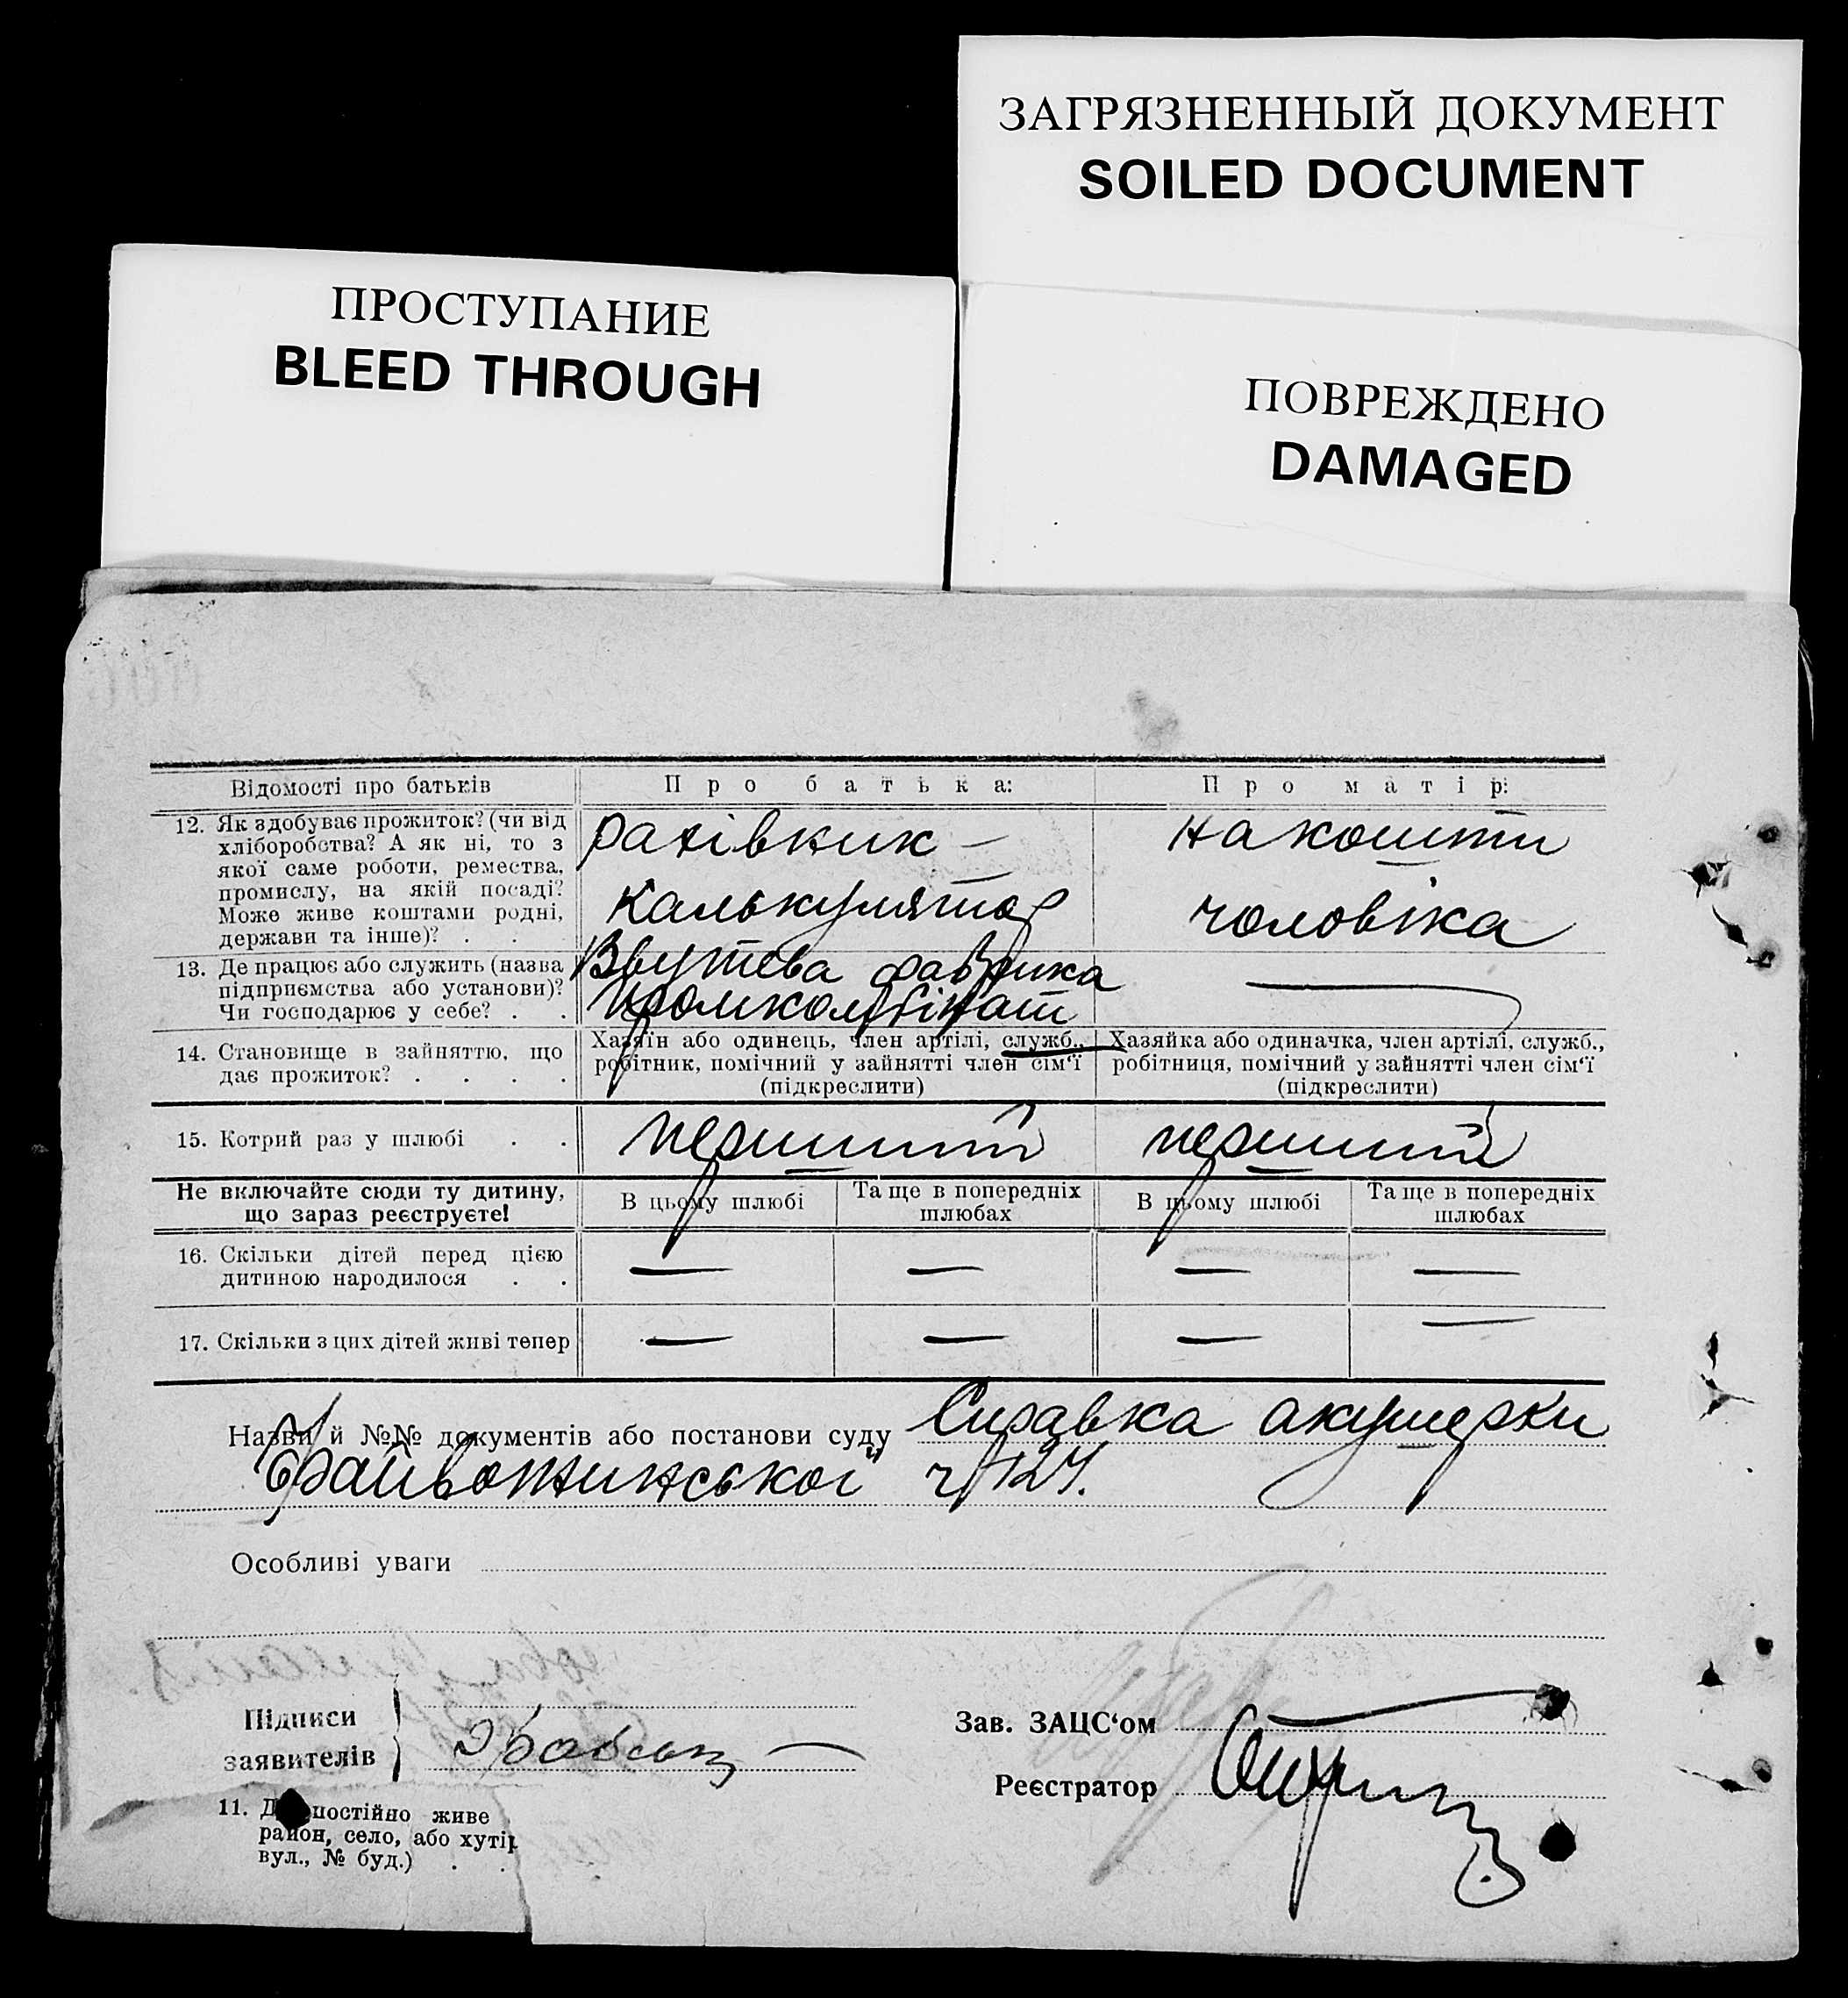 ЗАГРЯЗНЕННЫЙ ДОКУМЕНТ
SOILED DOCUMENT
ПРОСТУПАНИЕ
BLEED THROUGH
ПОВРЕЖДЕНО
DAMAGED
Відомості про батьків
Про батька:
Про матір:
12. Як здобуває прожиток? (чи від
хліборобства? А як ні, то з
якої саме роботи, ремества,
промислу, на якій посаді?
Може живе коштами родні,
держави та інше)? . .
рахівник –
калькулятор
на кошти
чоловіка
13. Де працює або служить (назва
підприємства або установи)?
Чи господарює у себе? . .
Взутєва фабрика
Промкомбінат
—
14. Становище в зайняттю, що
дає прожиток? . . . .
Хазяїн або одинець, член артілі, служб.,
робітник, помічний у зайнятті член сім‘ї
(підкреслити)
Хазяйка або одиначка, член артілі, служб.,
робітниця, помічний у зайнятті член сім‘ї
(підкреслити)
15. Котрий раз у шлюбі . .
перший
перший
Не включайте сюди ту дитину,
що зараз реєструєте!
В цьому шлюбі
Та ще в попередніх
шлюбах
В цьому шлюбі
Та ще в попередніх
шлюбах
16. Скільки дітей перед цією
дитиною народилося . .
— — — —
17. Скільки з цих дітей живі тепер
— — — —
Назви й №№ документів або постанови суду Справка акушерки
ч 124.
Особливі уваги
Підписи
заявителів
Зав. ЗАЦС‘ом
Реєстратор
11. постійно живе
район, село, або хутір
вул., № буд.) . .